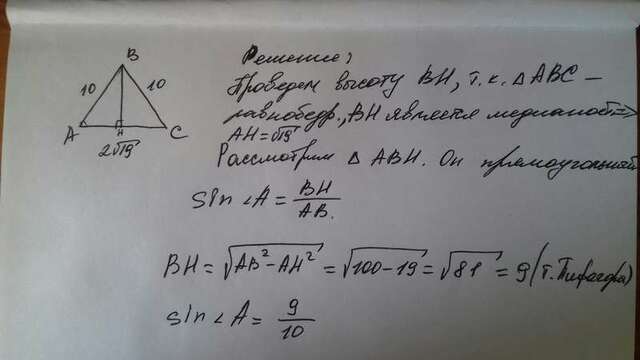 B
10 10
A H C
2√19
Решение:
Проведем высоту BH, т.к. △ABC –
равнобедр., BH является медианой ⇒
AH = √19
Рассмотрим △ ABH. Он прямоугольный
sin ∠A = BH/AB.
BH = √AB²-AH² = √100-19 = √81 = 9 (т. Пифагора)
sin ∠A = 9/10